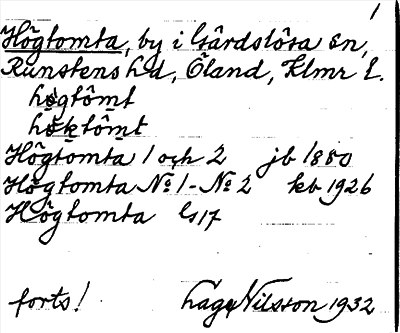 1
Högtomta, by i Gärdslösa sn,
Runstens hd, Öland, Klmr l.
høgtômt
høktômt
Högtomta 1 och 2 jb 1880
Högtomta No 1 - No 2 kb 1926
Högtomta Gs17
forts! Hage Nilsson 1932